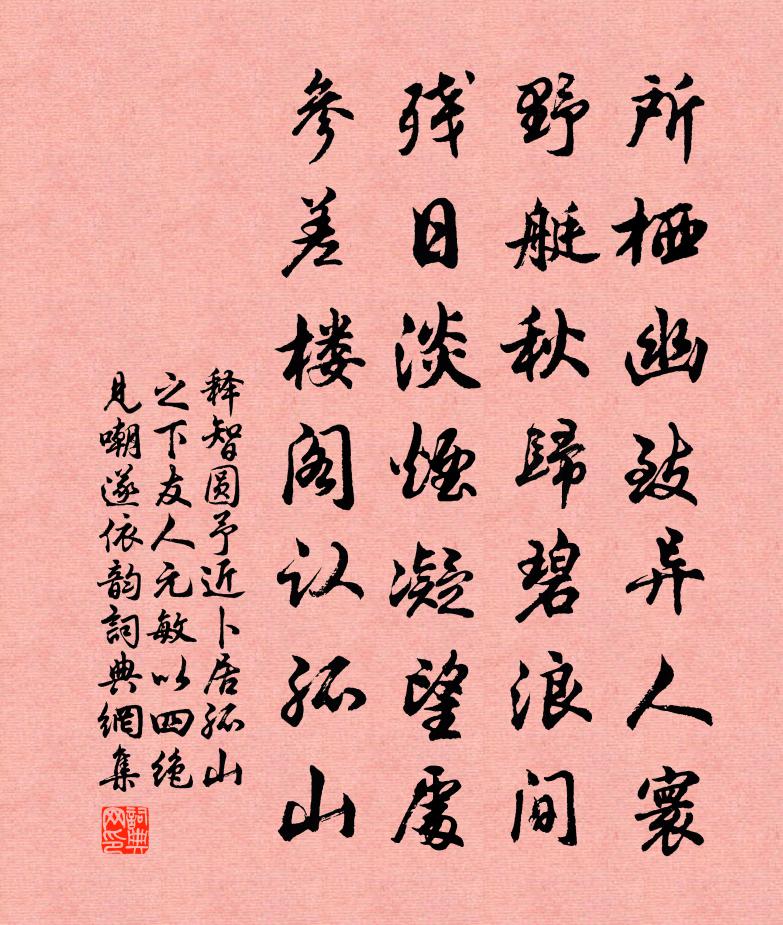 所栖幽致异人寰
野艇秋歸碧浪间
残日淡煙凝望處
參差楼阁认孤山
释智圆予近卜居孤山
之下友人元敏以四绝
見嘲遂依韵詞典網集
詞典网印